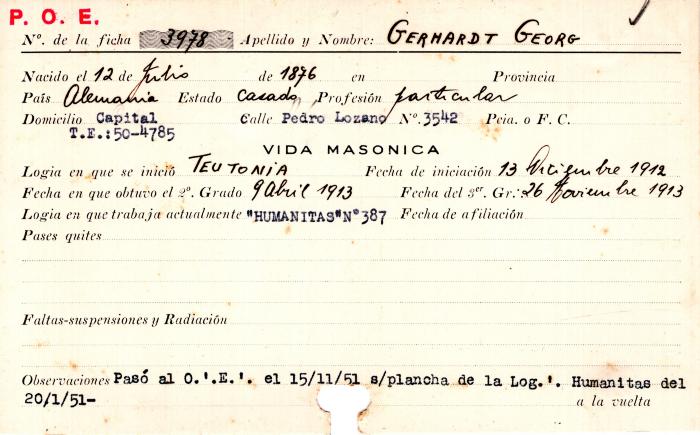 P. O. E.
Nº. de la ficha 3978 Apellido y Nombre: GERHARDT GEORG
Nacido el 12 de Julio de 1876 en Provincia
País Alemania Estado casado Profesión particular
Domicilio Capital Calle Pedro Lozano Nº. 3542 Pcia. o F. C.
T.E.:50-4785
VIDA MASONICA
Logia en que se inició TEUTONIA Fecha de iniciación 13 Diciembre 1912
Fecha en que obtuvo el 2º. Grado 9 Abril 1913 Fecha del 3er. Gr.: 26 Noviembre 1913
Logia en que trabaja actualmente "HUMANITAS" Nº 387 Fecha de afiliación
Pases quites
Faltas-suspensiones y Radiación
Observaciones Pasó al O.'.E.'. el 15/11/51 s/plancha de la Log.'. Humanitas del
20/1/51- a la vuelta